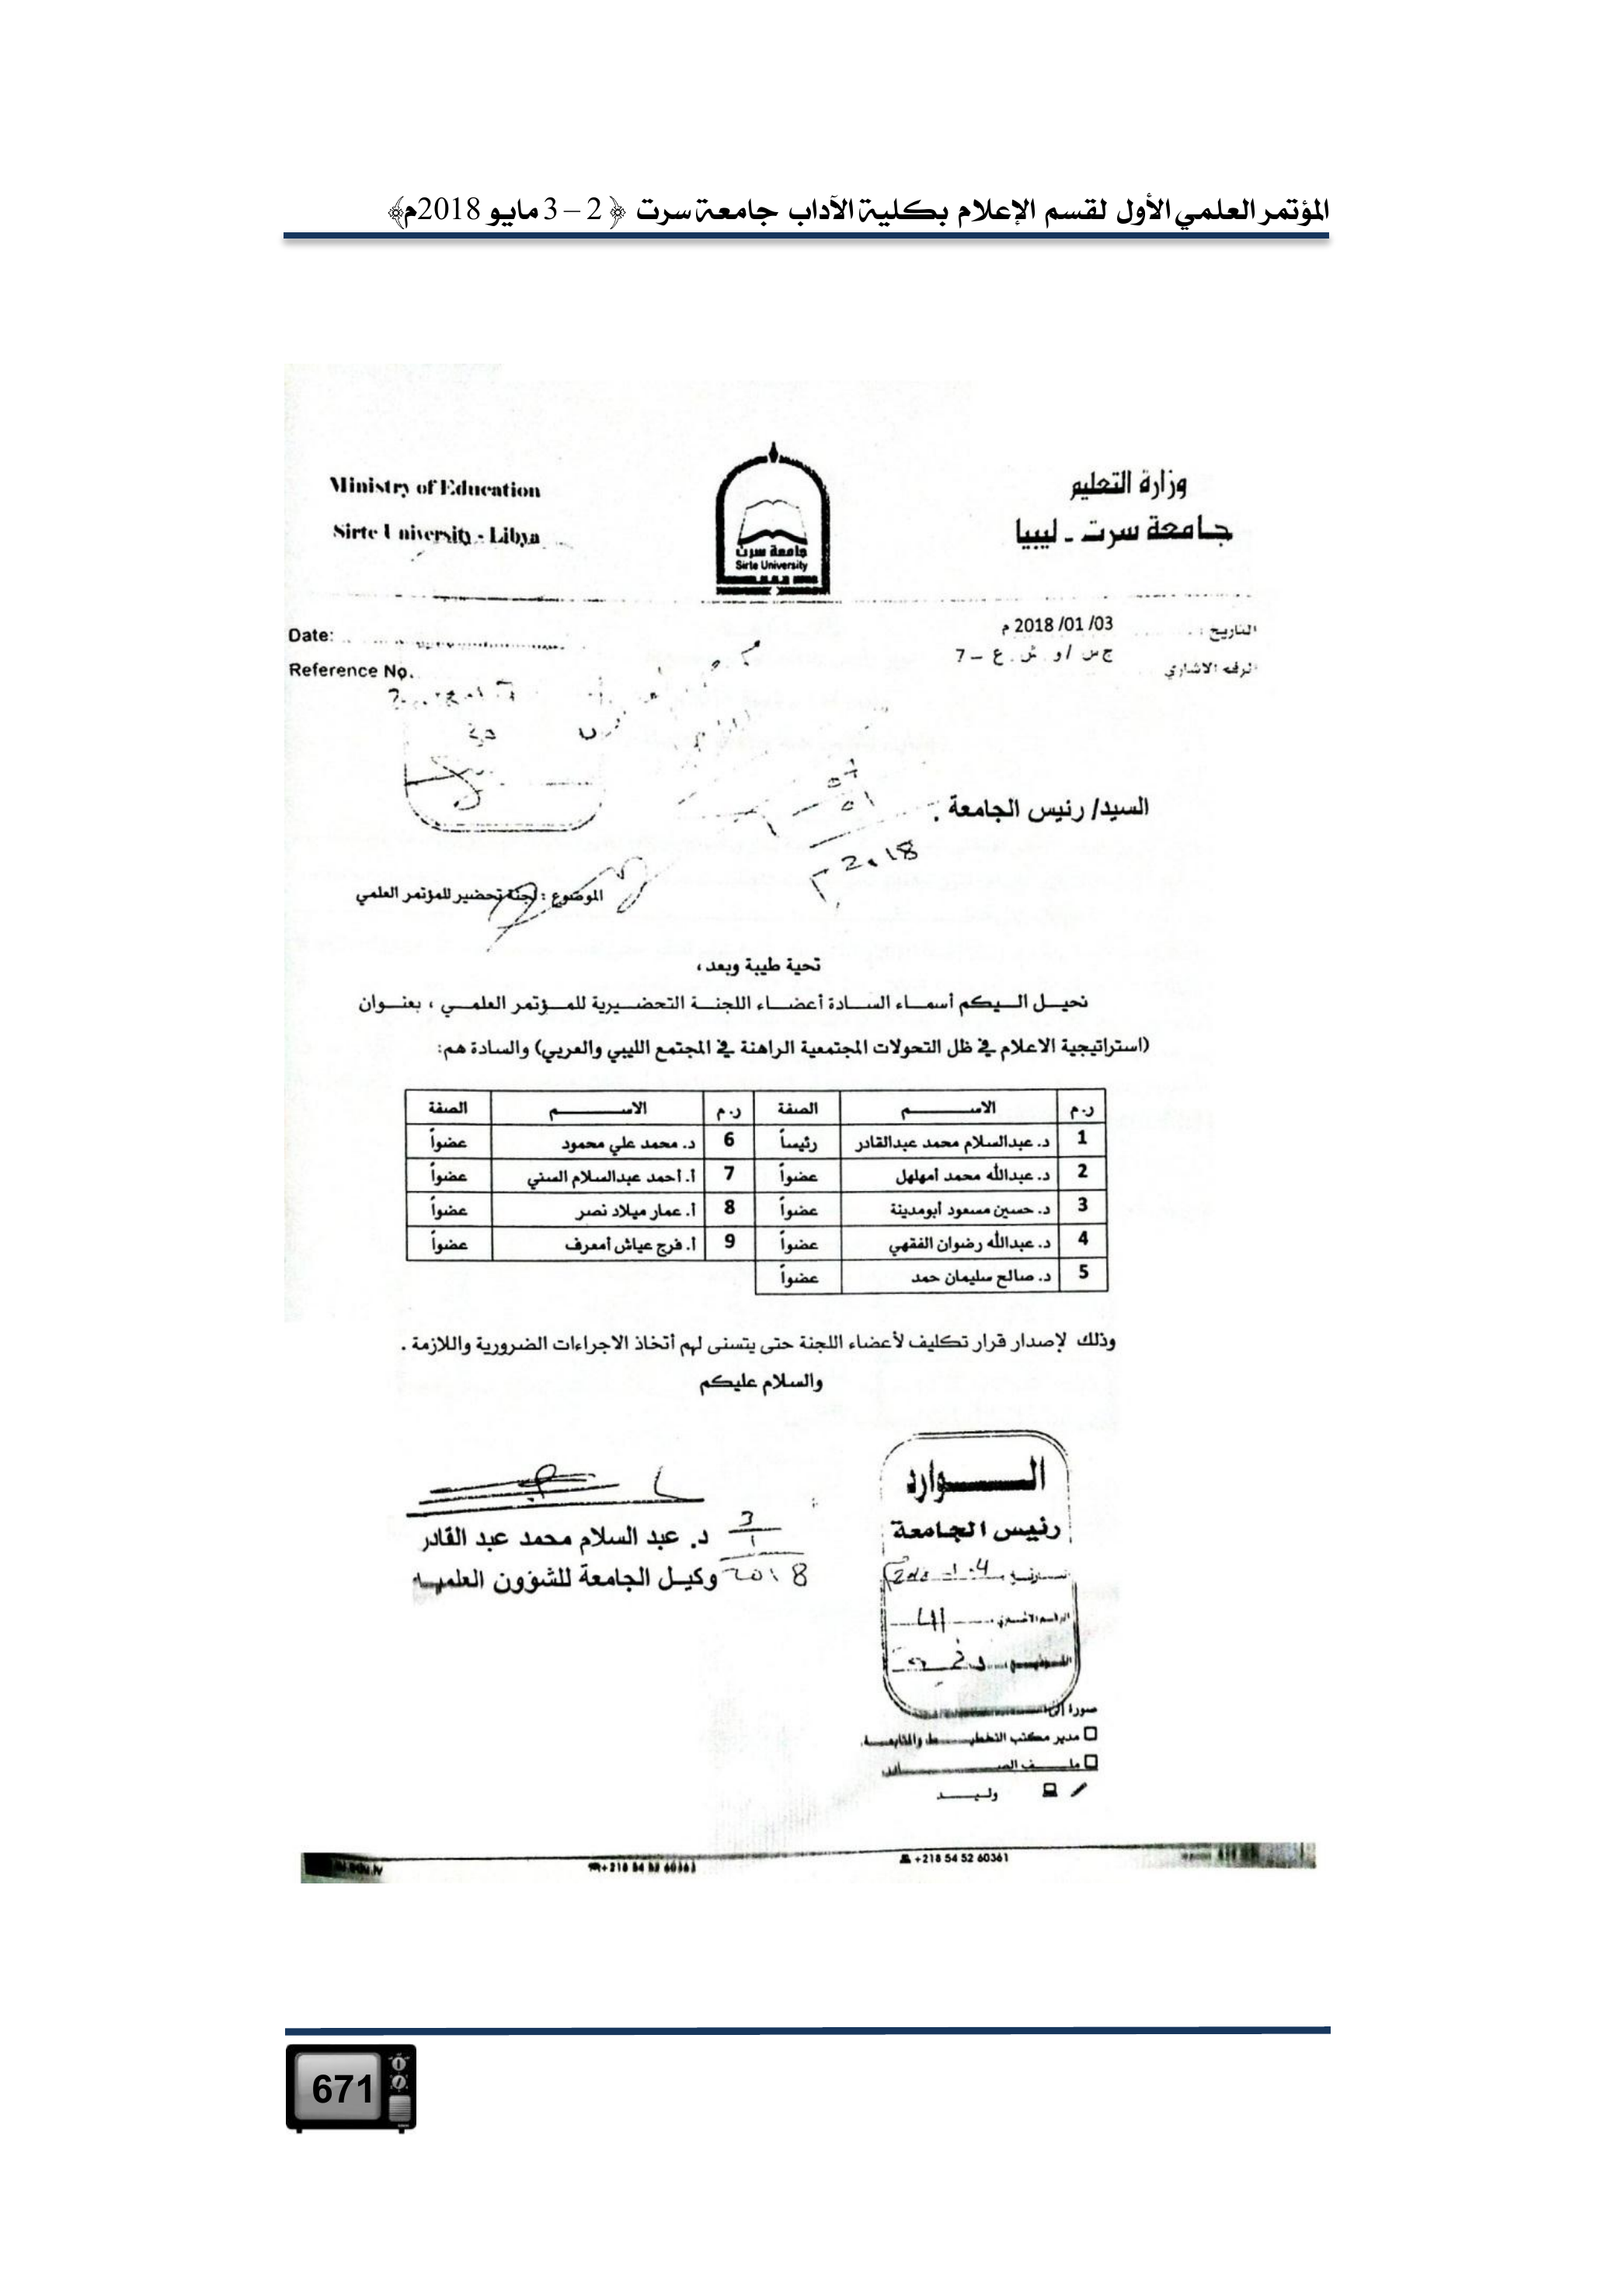 المؤتمر العلمي الأول لقسم الإعلام بكلية الآداب جامعة سرت ﴿2 – 3 مايو 2018م﴾
وزارة التعليم
Ministry of Education
جامعة سرت - ليبيا
Sirte University - Libya
جامعة سرت
Sirte University
التاريخ : 03/ 01/ 2018 م
Date:
الرقم الاشاري ج س / و . ش . ع – 7
Reference No.
السيد/ رئيس الجامعة .
2018
الموضوع : لجنة تحضير للمؤتمر العلمي
تحية طيبة وبعد ،
نحيل اليكم أسماء السادة أعضاء اللجنة التحضيرية للمؤتمر العلمي ، بعنوان
(استراتيجية الاعلام في ظل التحولات المجتمعية الراهنة في المجتمع الليبي والعربي) والسادة هم:
ر.م الاسم الصفة ر.م الاسم الصفة
1 د. عبدالسلام محمد عبدالقادر رئيساً 6 د. محمد علي محمود عضواً
2 د. عبدالله محمد أمهلهل عضواً 7 أ. أحمد عبدالسلام السني عضواً
3 د. حسين مسعود أبومدينة عضواً 8 أ. عمار ميلاد نصر عضواً
4 د. عبدالله رضوان الفقهي عضواً 9 أ. فرج عياش أمعرف عضواً
5 د. صالح سليمان حمد عضواً
وذلك لإصدار قرار تكليف لأعضاء اللجنة حتى يتسنى لهم أتخاذ الاجراءات الضرورية واللازمة .
والسلام عليكم
د. عبد السلام محمد عبد القادر
وكيل الجامعة للشؤون العلمية
3
1
2018
الوارد
رئيس الجامعة
صورة إلى
مدير مكتب التخطيط والمتابعة
وليد
+218 54 52 60363
+218 54 52 60361
671